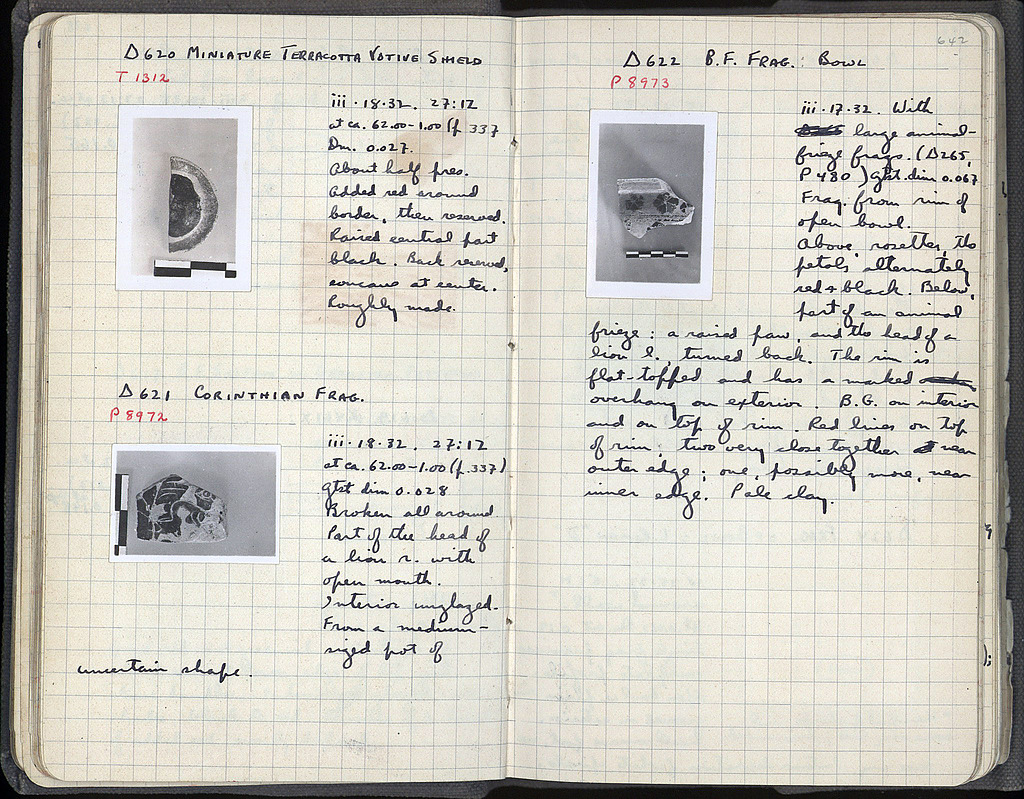 Δ620 MINIATURE TERRACOTTA VOTIVE SHIELD
T 1312
iii·18·32. 27:12
at ca. 62.00-1.00 (p. 337
Dm. 0.027.
About half pres.
Added red around
border, then reserved.
Raised central part
black. Back reserved,
concave at center.
Roughly made.
Δ621 CORINTHIAN FRAG.
P 8972
iii·18·32. 27:12
at ca. 62.00-1.00 (p. 337)
Gtst dim 0.028
Broken all around
Part of the head of
a lion r. with
open mouth.
Interior unglazed.
From a medium-
sized pot of
uncertain shape.
642
Δ622 B.F. FRAG.: BOWL
P 8973
iii·17·32. With
large animal-
frieze frags. (Δ265,
P 480) Gtst. dim 0.067
Frag. from rim of
open bowl.
Above, rosettes, the
petals alternately
red & black. Below,
part of an animal
frieze: a raised paw, and the head of a
lion l., turned back. The rim is
flat-topped and has a marked
overhang on exterior. B.G. on interior
and on top of rim. Red lines on top
of rim; two very close together near
outer edge; one, possibly more, near
inner edge. Pale clay.